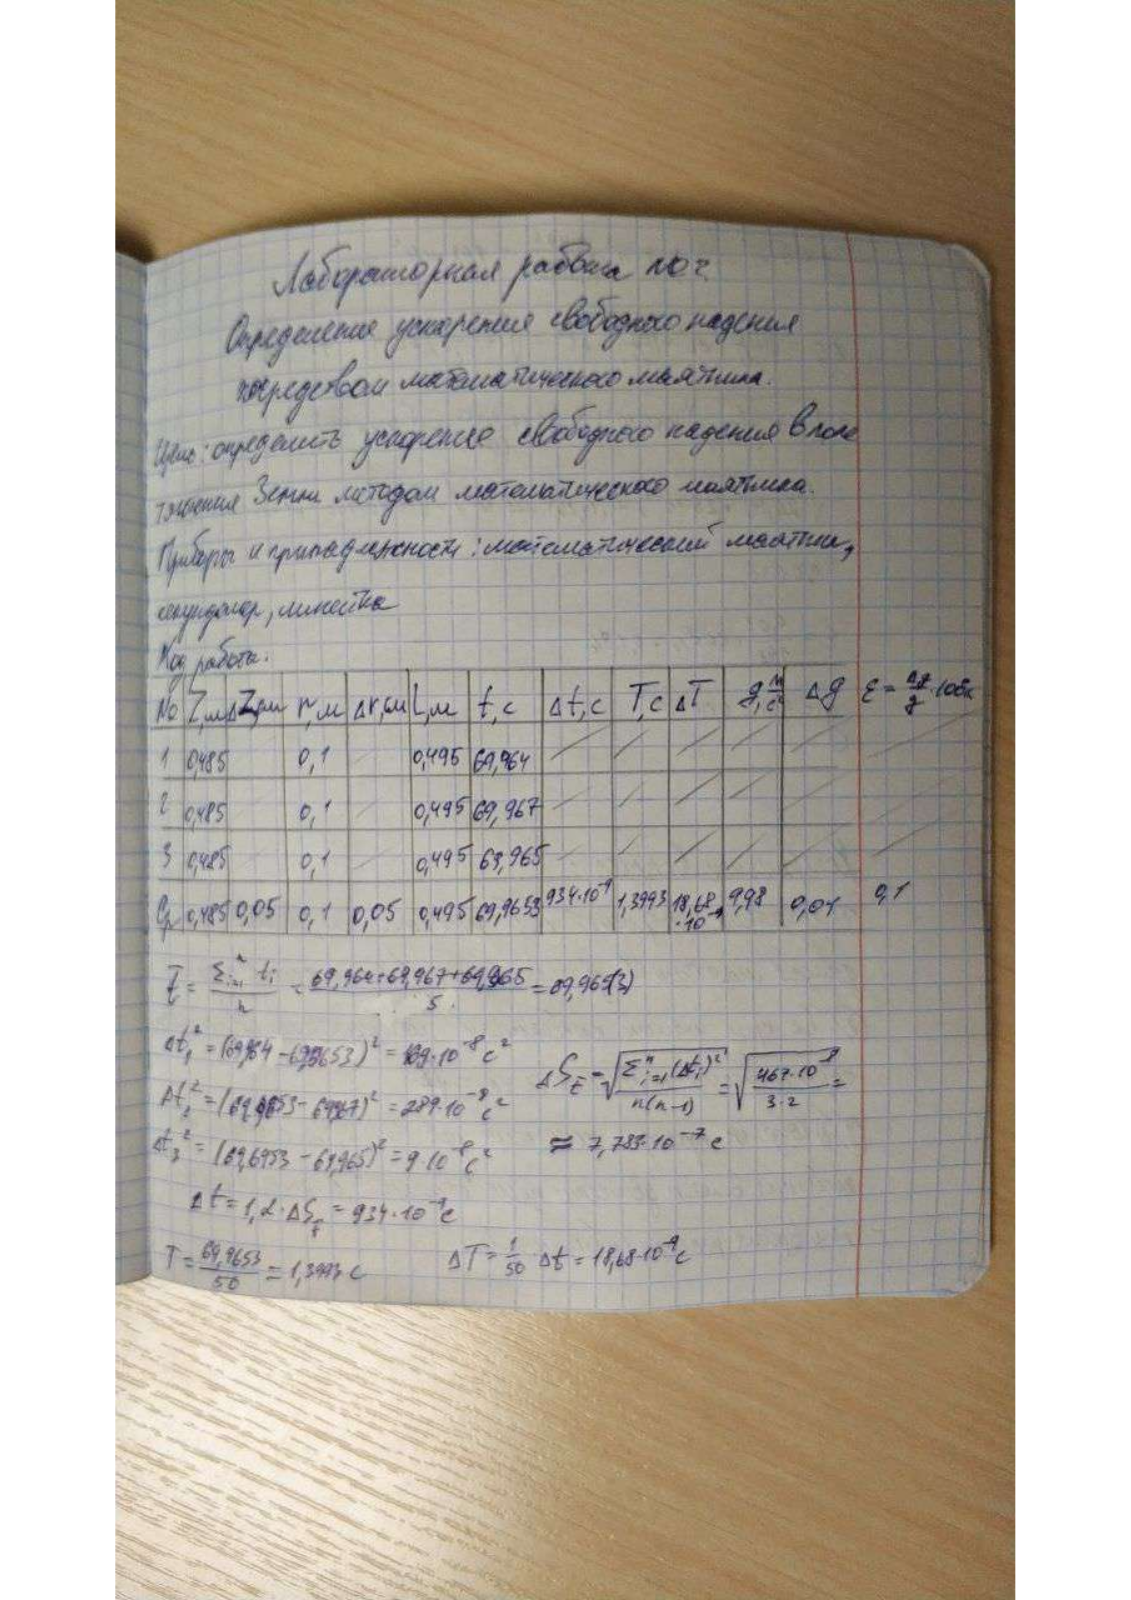 Лабораторная работа №2
Определение ускорения свободного падения
посредством математического маятника.
Цель: определить ускорение свободного падения в поле
тяжения Земли методом математического маятника.
Приборы и принадлежности: математический маятник,
секундомер, линейка
Ход работы.
№ Z,м ΔZ,см r,м Δr,см L,м t,с Δt,с T,с ΔT g, м/с² Δg ε = Δg/g · 100%
1 0,485 0,1 0,495 69,964
2 0,485 0,1 0,495 69,967
3 0,485 0,1 0,495 69,965
Ср 0,485 0,05 0,1 0,05 0,495 69,9653 934·10⁻⁹ 1,3993 18,68·10⁻⁹ 9,98 0,01 0,1
t̄ = Σⁿᵢ₌₁ tᵢ / n = (69,964+69,967+69,965) / 3 = 69,965(3)
Δt₁² = (69,964 - 69,9653)² = 169·10⁻⁸ с²
Δt₂² = (69,9653 - 69,967)² = 289·10⁻⁸ с²
ΔS_t̄ = √(Σⁿᵢ₌₁(Δtᵢ)² / n(n-1)) = √(467·10⁻⁸ / 3·2) =
Δt₃² = (69,6953 - 69,965)² = 9·10⁻⁸ с²
≈ 7,783·10⁻⁷ с
Δt = 1,2·ΔS_t̄ = 934·10⁻⁹ с
T = 69,9653 / 50 = 1,3993 с
ΔT = 1/50 · Δt = 18,68·10⁻⁹ с